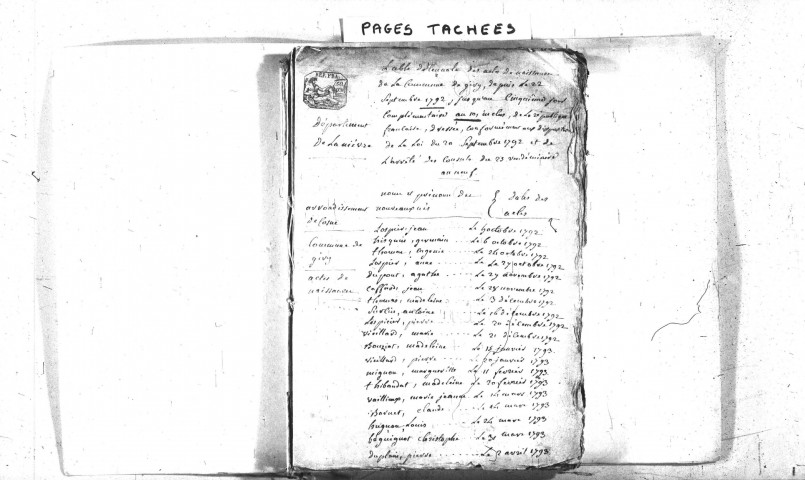 PAGES TACHEES
REP. FRA.
Table décennale des actes de naissances
de la Commune de givry, depuis le 22
Septembre 1792, jusqu'au Cinquième jour
complémentaire an 10, inclus, de la république
française, dressée, conformément aux dispositions
de la Loi du 20 Septembre 1792 et de
L'arrêté des Consuls du 25 vendémiaire
an neuf
Département
De La nièvre
arrondissement
de Cosne
Commune de
givry
actes de
naissances
noms et prénoms des
nouveaux nés
Dates des
actes
Lospied, jean le 4 octobre 1792
germain le 6 octobre 1792
thomas, eugenie le 26 octobre 1792
Lespier, anne Le 27 octobre 1792
Dupont, agathe Le 27 novembre 1792
jean Le 28 novembre 1792
thomas, madeleine Le 3 décembre 1792
antoine Le 16 décembre 1792
pierre Le 20 décembre 1792
vieillard, marie Le 21 décembre 1792
madeleine Le 18 janvier 1793
vieillard, pierre Le 30 janvier 1793
mignon, marguerite Le 11 fevrier 1793
thibaudat, madeleine Le 20 fevrier 1793
marie jeanne Le 14 mars 1793
claude Le 24 mars 1793
hugnon, Louis Le 24 mars 1793
béguignot christophe Le 31 mars 1793
duplaix, pierre Le 2 avril 1793